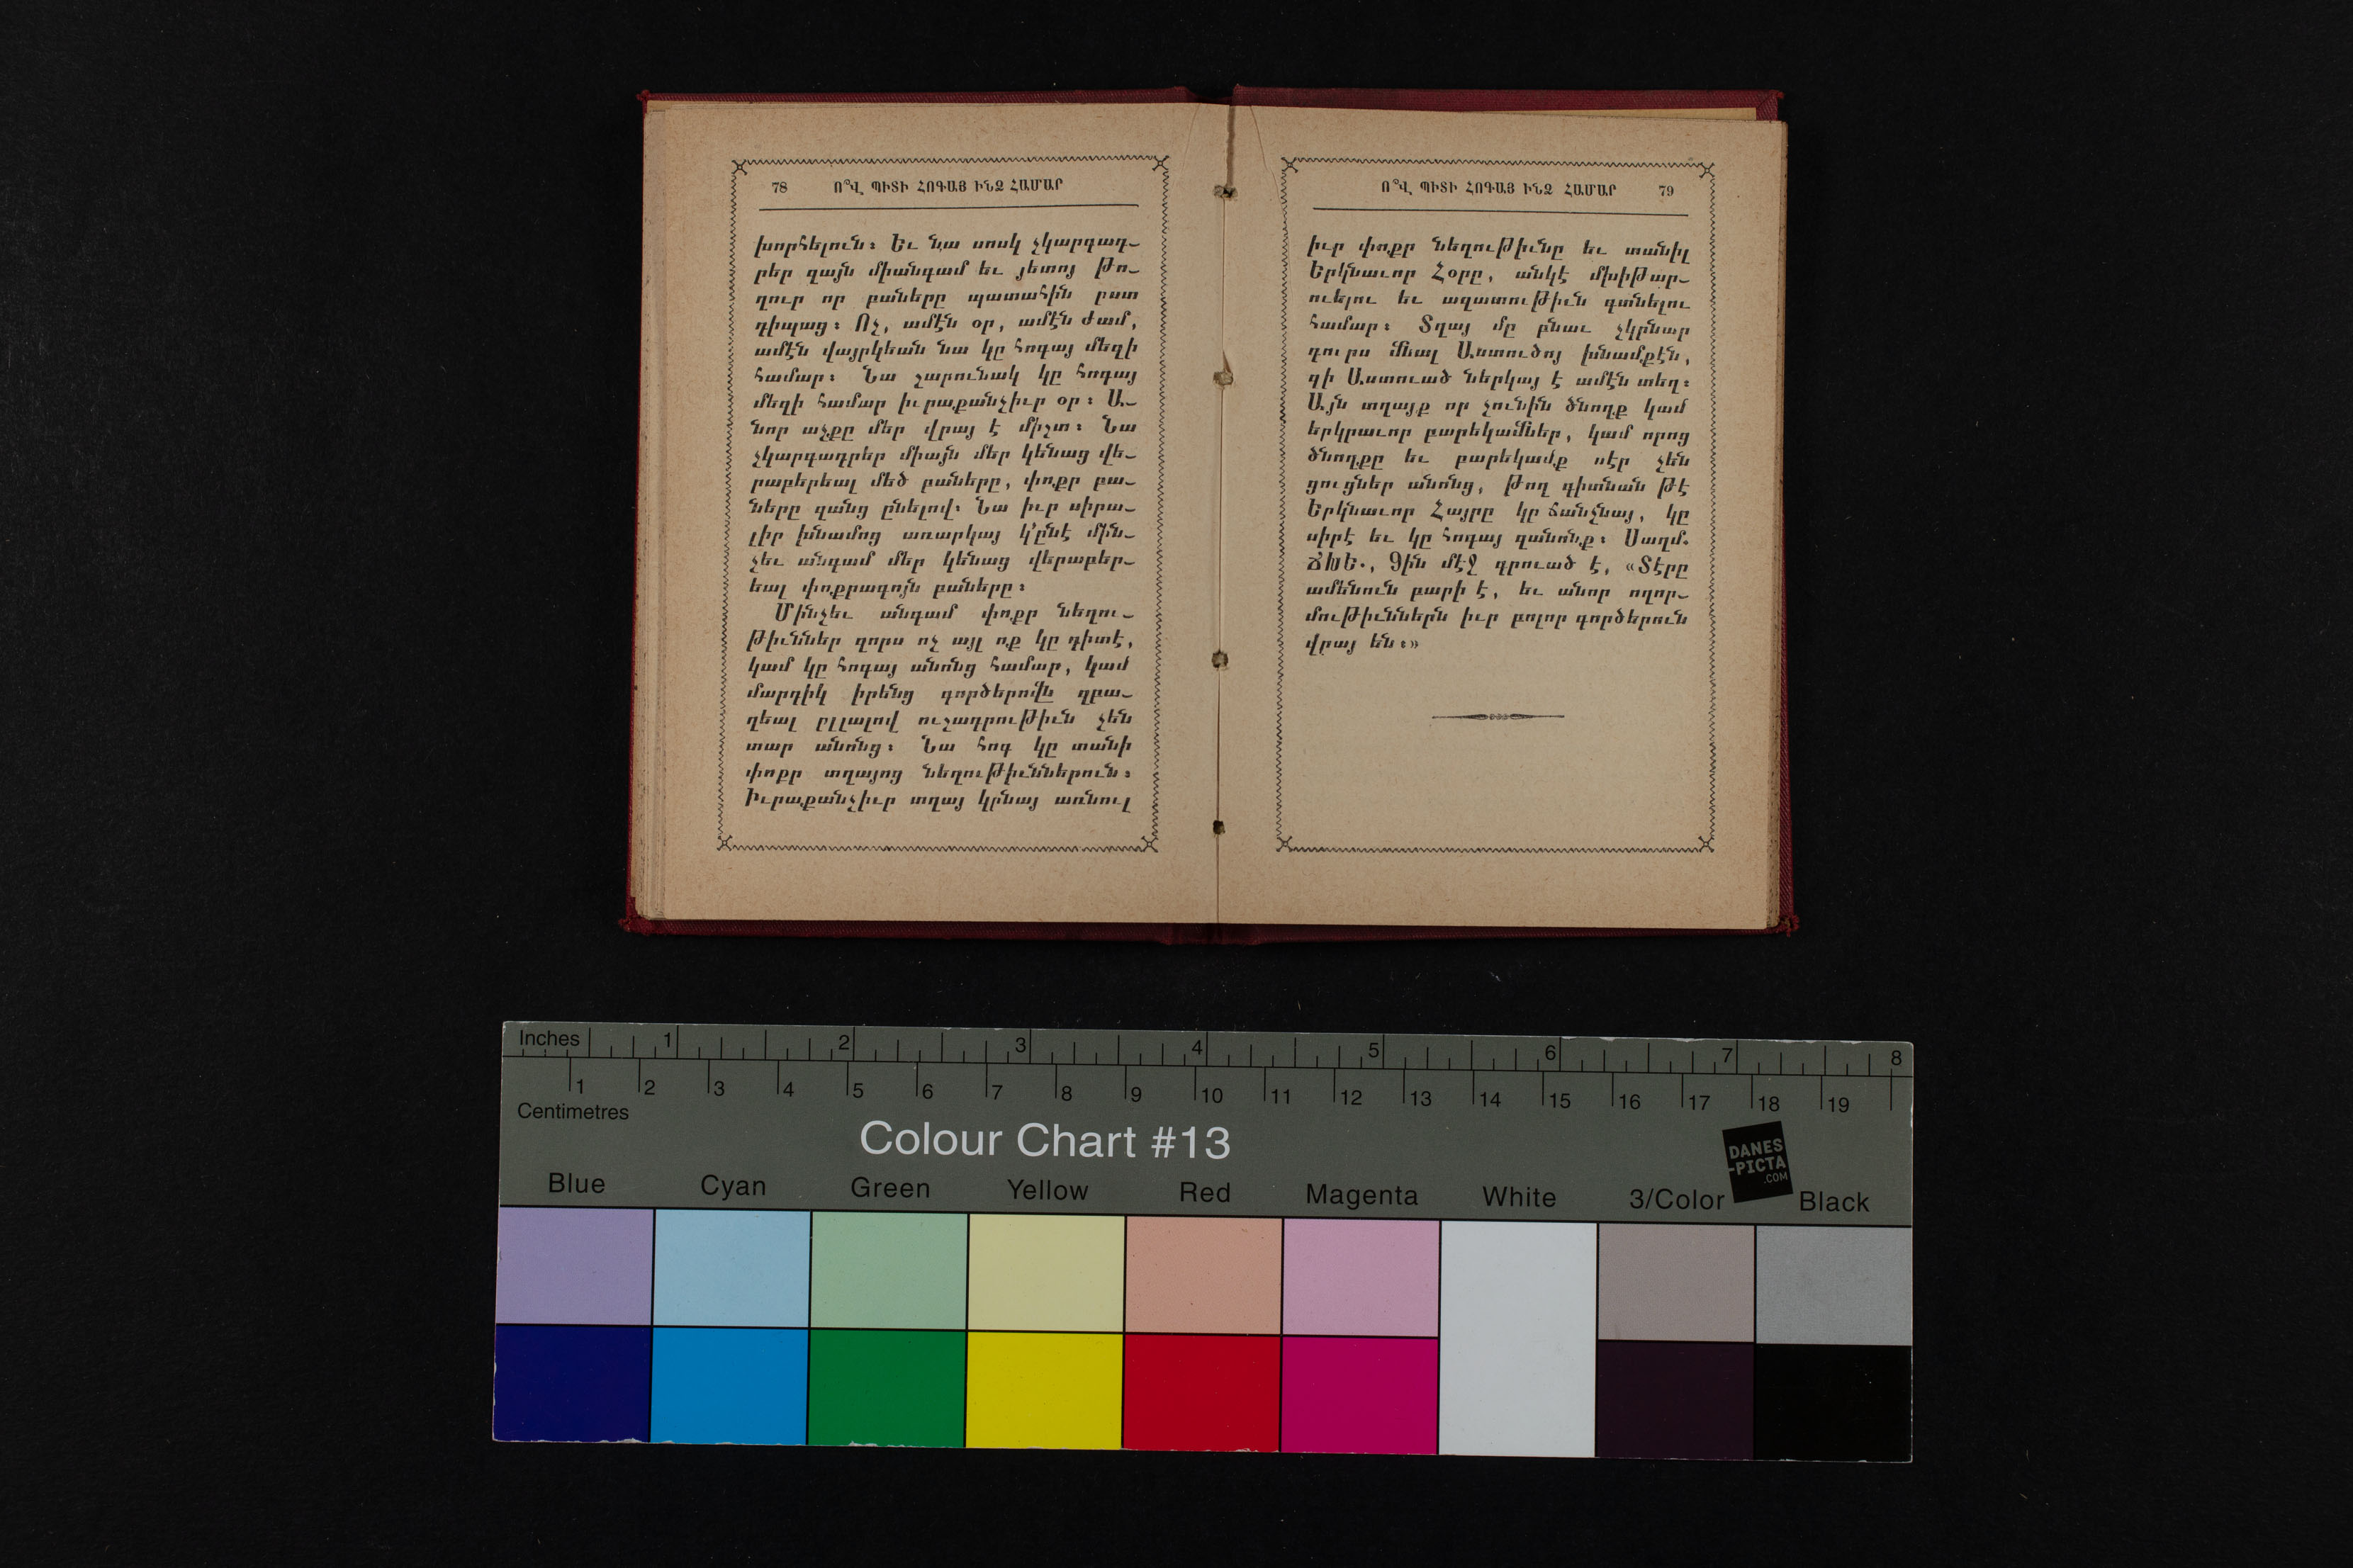 78 Ո՞Վ ՊԻՏԻ ՀՈԳԱՅ ԻՆՁ ՀԱՄԱՐ
խորհելուն։ Եւ նա սոսկ չկարգադ–
րեր զայն միանգամ եւ յետոյ թո–
ղուր որ բաները պատահին ըստ
դիպաց։ Ոչ, ամէն օր, ամէն ժամ,
ամէն վայրկեան նա կը հոգայ մեզի
համար։ Նա շարունակ կը հոգայ
մեզի համար իւրաքանչիւր օր։ Ա–
նոր աչքը մեր վրայ է միշտ։ Նա
չկարգադրեր միայն մեր կենաց վե–
րաբերեալ մեծ բաները, փոքր բա–
ները զանց ընելով։ Նա իւր սիրա–
լիր խնամոց առարկայ կ՚ընէ մին–
չեւ անգամ մեր կենաց վերաբեր–
եալ փոքրագոյն բաները։
Մինչեւ անգամ փոքր նեղու–
թիւններ զորս ոչ այլ ոք կը գիտէ,
կամ կը հոգայ անոնց համար, կամ
մարդիկ իրենց գործերովն զբա–
ղեալ ըլլալով ուշադրութիւն չեն
տար անոնց։ Նա հոգ կը տանի
փոքր տղայոց նեղութիւններուն։
Իւրաքանչիւր տղայ կրնայ առնուլ
Ո՞Վ ՊԻՏԻ ՀՈԳԱՅ ԻՆՁ ՀԱՄԱՐ 79
իւր փոքր նեղութիւնը եւ տանիլ
Երկնաւոր Հօրը, անկէ մխիթար–
ուելու եւ ազատութիւն գտնելու
համար։ Տղայ մը բնաւ չկրնար
դուրս մնալ Աստուծոյ խնամքէն,
զի Աստուած ներկայ է ամէն տեղ։
Այն տղայք որ չունին ծնողք կամ
երկրաւոր բարեկամներ, կամ որոց
ծնողքը եւ բարեկամք սէր չեն
ցուցներ անոնց, թող գիտնան թէ
Երկնաւոր Հայրը կը ճանչնայ, կը
սիրէ եւ կը հոգայ զանոնք։ Սաղմ.
ՃԽԵ., 9ին մէջ գրուած է, «Տէրը
ամենուն բարի է, եւ անոր ողոր–
մութիւններն իւր բոլոր գործերուն
վրայ են։»
Inches 1 2 3 4 5 6 7 8
1 2 3 4 5 6 7 8 9 10 11 12 13 14 15 16 17 18 19
Centimetres
Colour Chart #13
DANES
-PICTA
.COM
Blue Cyan Green Yellow Red Magenta White 3/Color Black